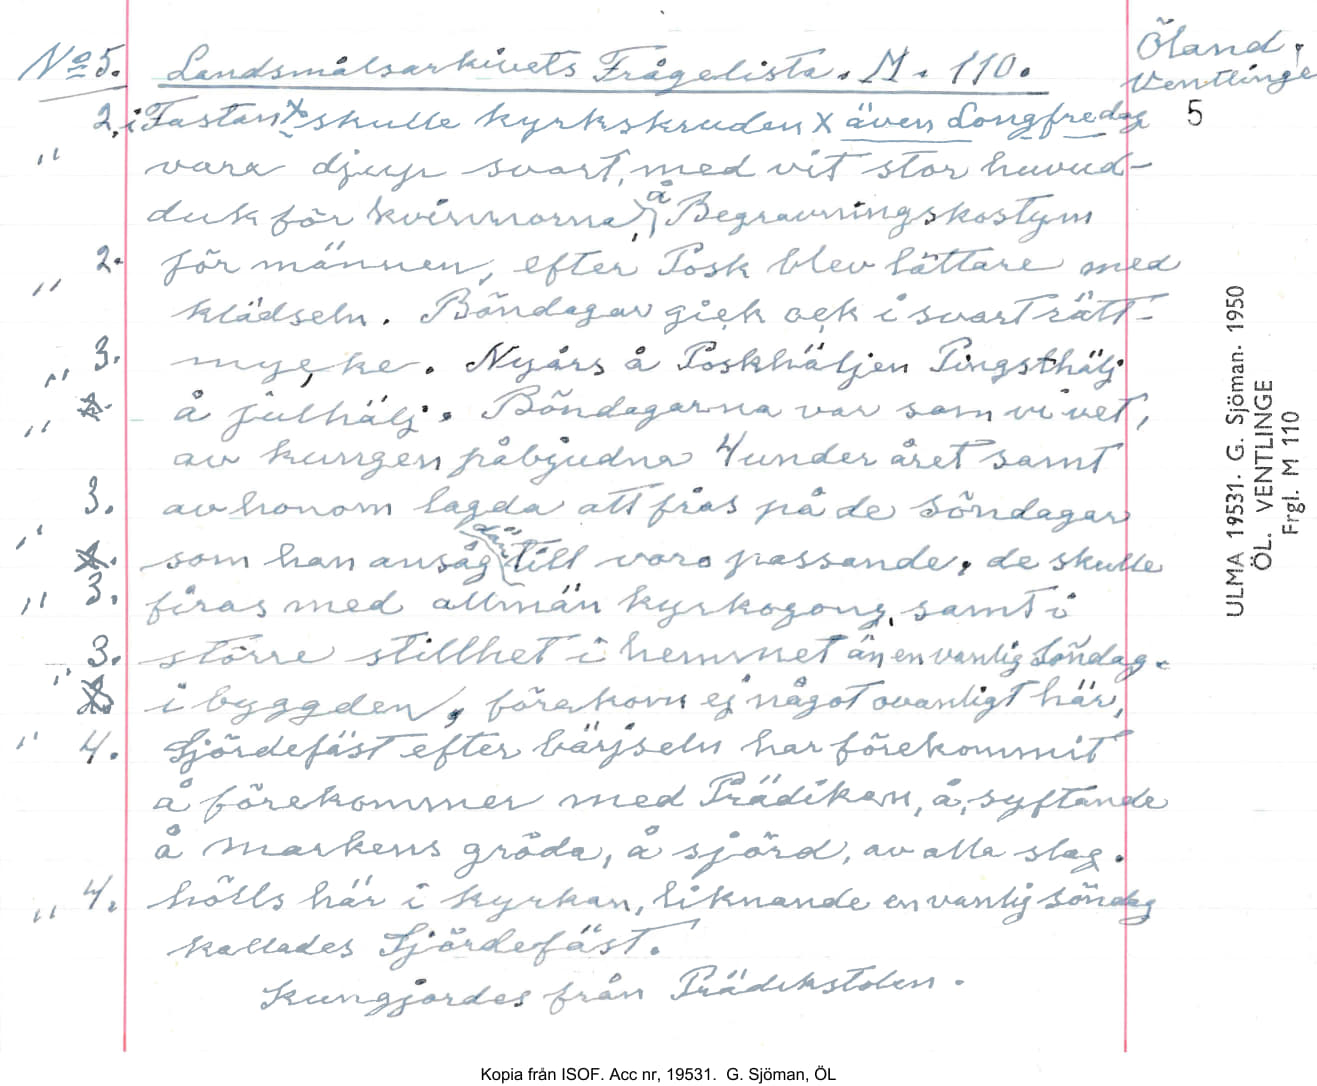 No 5. Landsmålsarkivets Frågelista. M. 110. Öland,
Ventlinge
5
2. i Fastan x skulle kyrkskruden x även Longfredag
" vara djup svart, med vit stor huvud-
duk för kvinnorna, å Begravningskostym
" 2. för männen, efter Posk blev lättare med
klädseln. Böndagar gick ock i svart rätt
" 3. mycke. Nyårs å Poskhäljen Pingsthälj
" å julhälj. Böndagarna var som vi vet,
av kungen påbjudna 4 under året samt
" 3. av honom lagda att firas på de söndagar
som han ansåg där till voro passande, de skulle
" 3. firas med allmän kyrkogong, samt i
" 3. större stillhet i hemmet än en vanlig Söndag.
i byggden, förekom ej något ovanligt här,
" 4. Sjördefäst efter bärjseln har förekommit
å förekommer med Prädikan, å, syftande
å markens gröda, å sjörd, av alla slag.
" 4. hölls här i kyrkan, liknande en vanlig söndag
kallades Sjördefäst.
Kungjordes från Prädikstolen.
ULMA 19531. G. Sjöman. 1950
ÖL. VENTLINGE
Frgl. M 110
Kopia från ISOF. Acc nr, 19531. G. Sjöman, ÖL